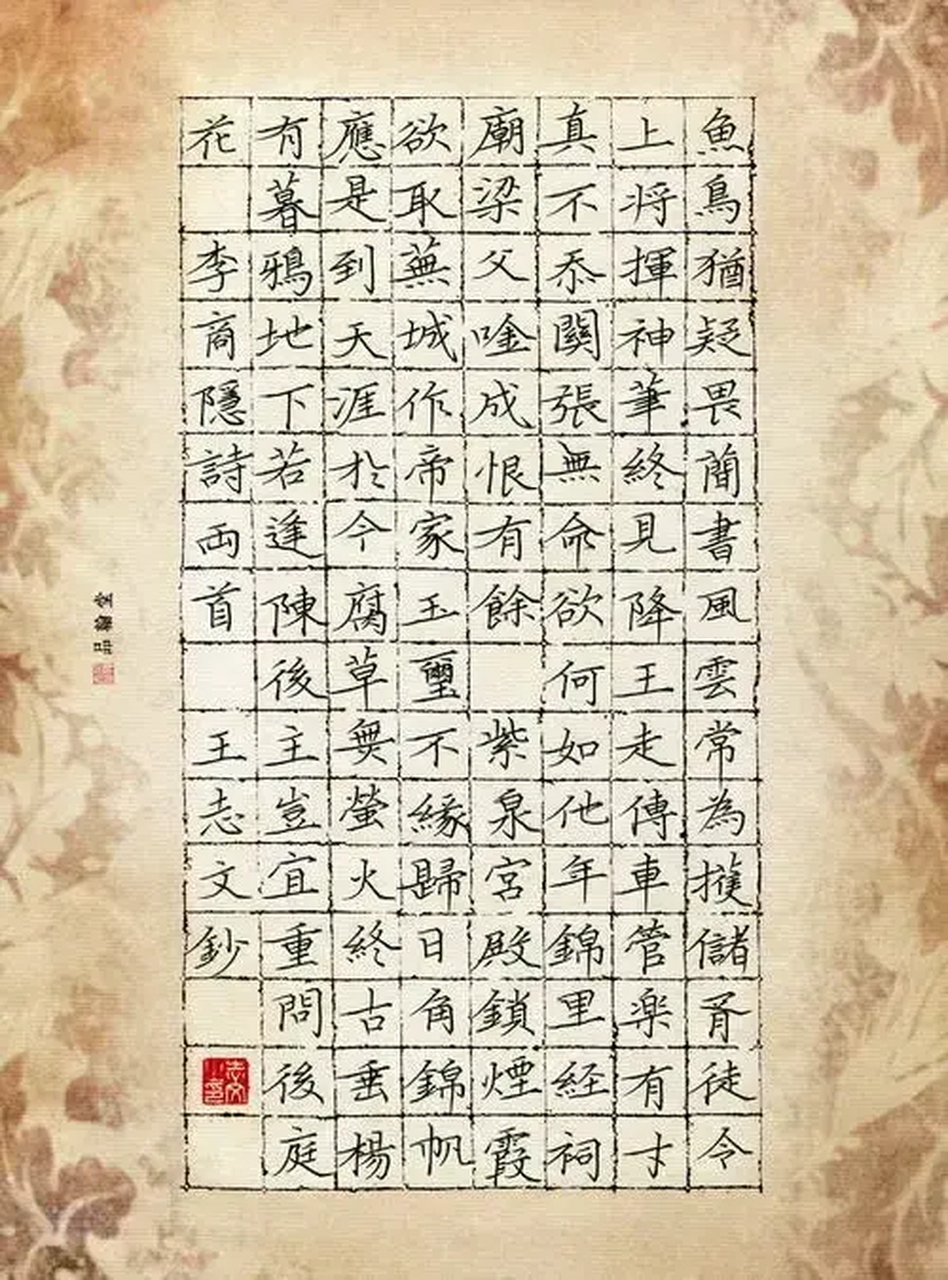 魚鳥猶疑畏簡書風雲常為擁儲胥徒令
上將揮神筆終見降王走傳車管楽有才
真不忝關張無命欲何如他年錦里経祠
廟梁父唫成恨有餘 紫泉宮殿鎖煙霞
欲取蕪城作帝家玉璽不緣歸日角錦帆
應是到天涯於今腐草無螢火終古垂楊
有暮鴉地下若逢陳後主豈宜重問後庭
花 李商隱詩両首 王志文鈔
志文小印
品翰堂